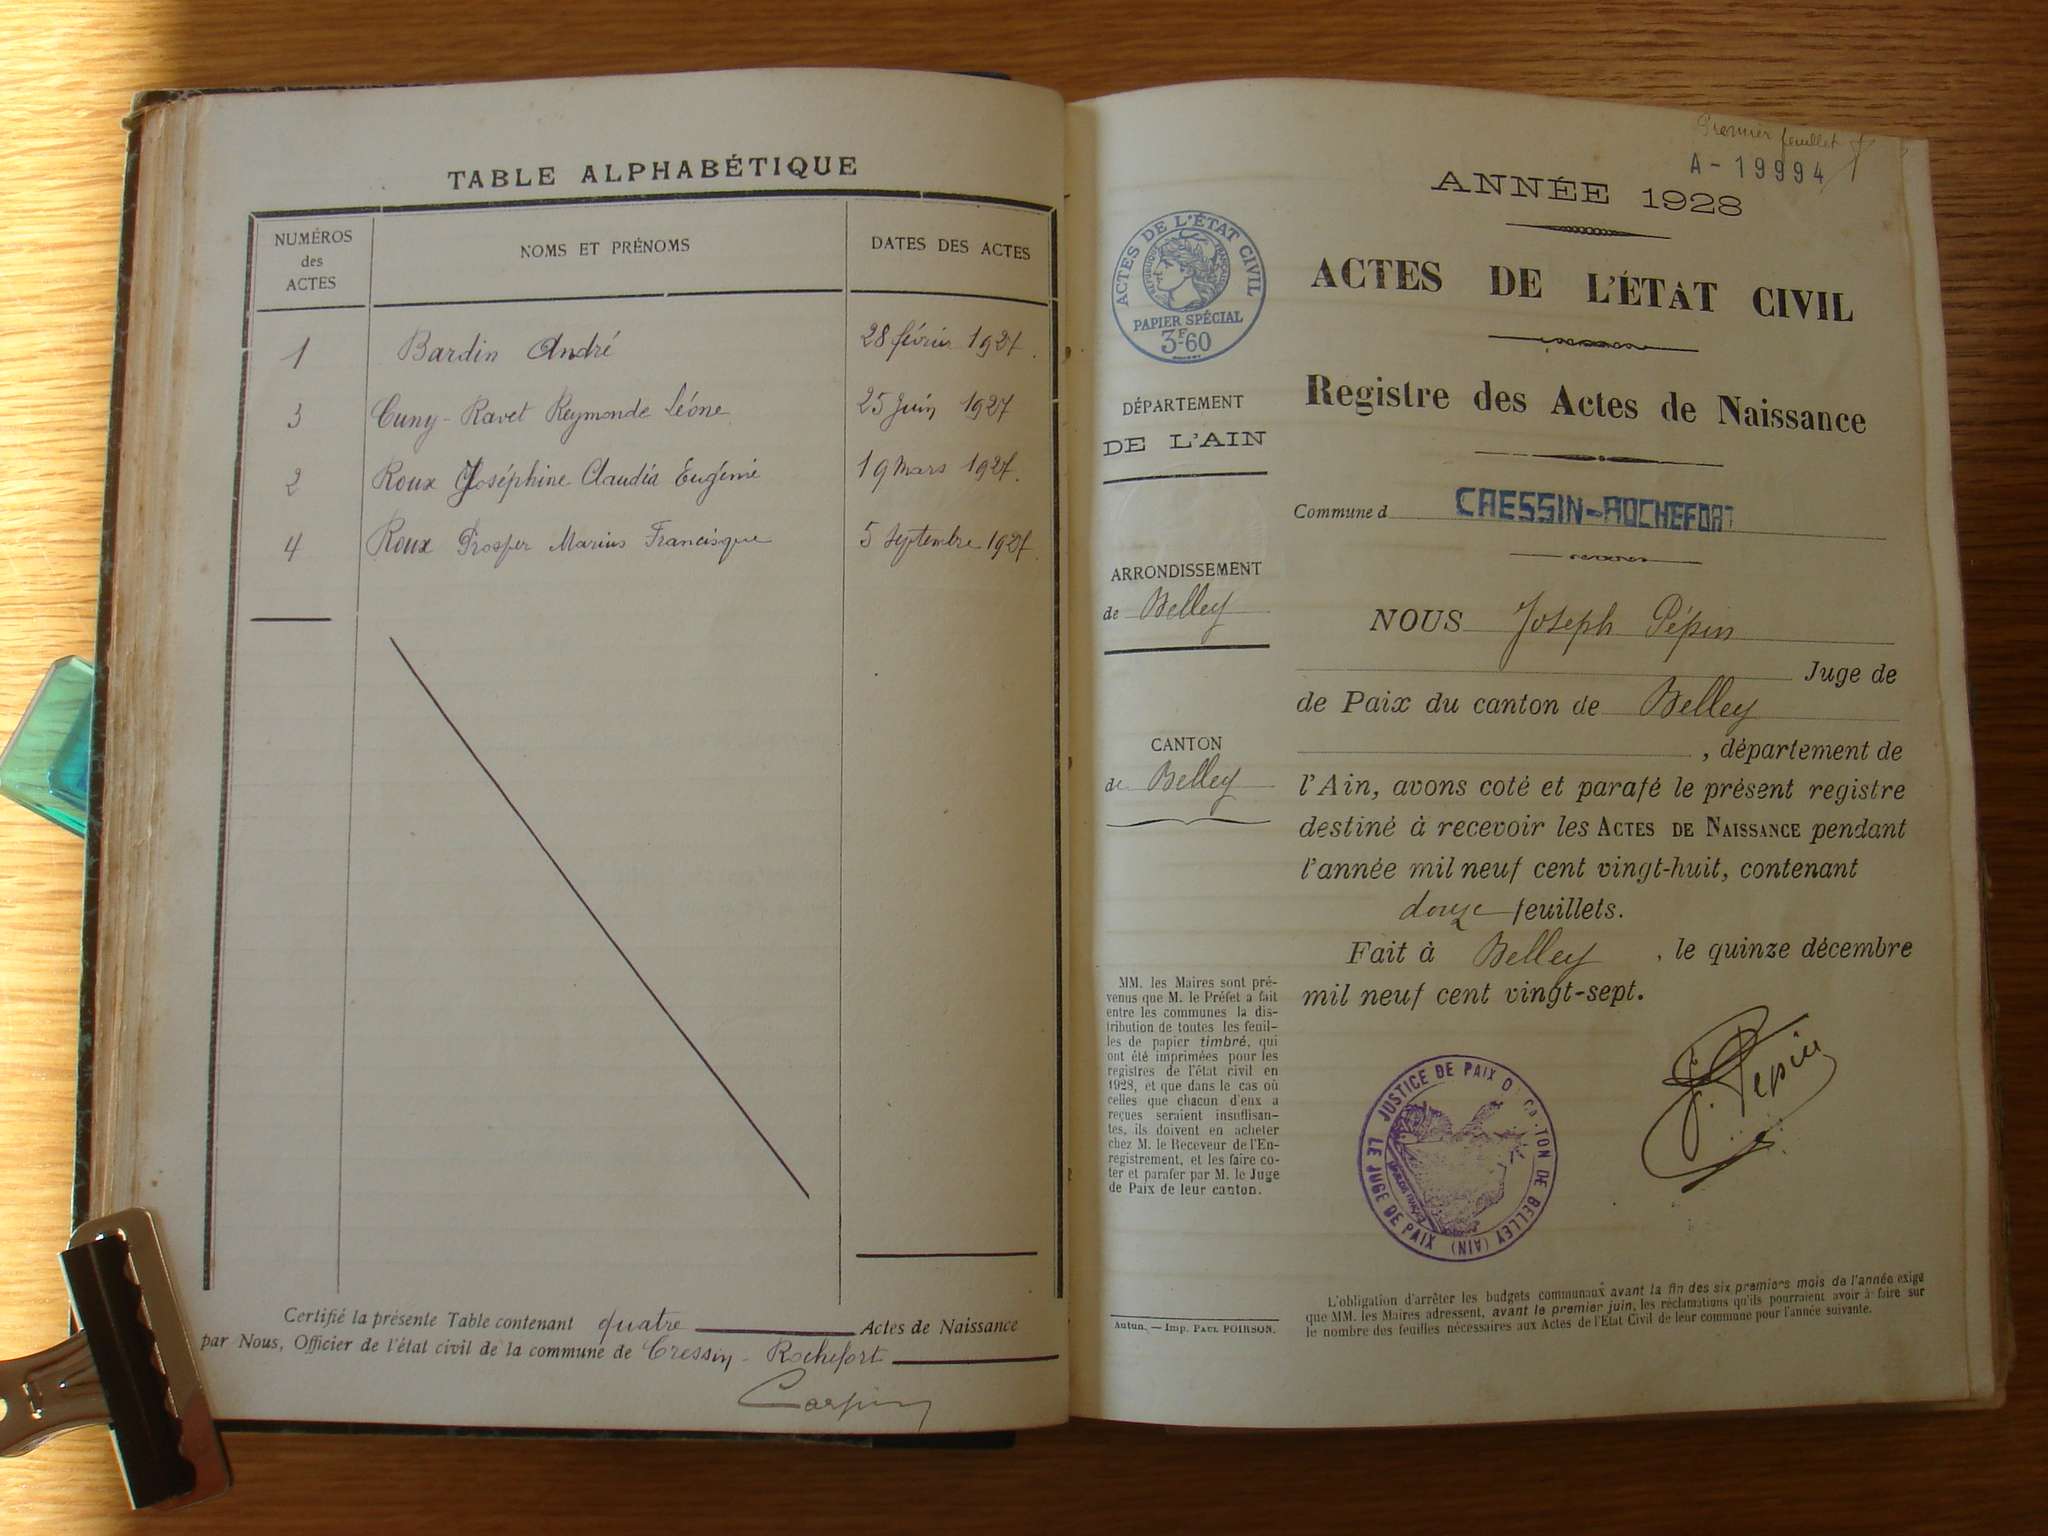 TABLE ALPHABÉTIQUE
NUMÉROS
des
ACTES
NOMS ET PRÉNOMS
DATES DES ACTES
1 Bardin André 28 février 1927.
3 Cuny-Ravet Reymonde Léone 25 Juin 1927
2 Roux Joséphine Claudia Eugénie 19 Mars 1927.
4 Roux Prosper Marius Francisque 5 Septembre 1927.
Certifié la présente Table contenant quatre Actes de Naissance
par Nous, Officier de l'état civil de la commune de Cressin-Rochefort
Premier feuillet
A-19994
ANNÉE 1928
ACTES DE L'ÉTAT CIVIL
RÉPUBLIQUE FRANÇAISE
PAPIER SPÉCIAL
3F60
DÉPARTEMENT
DE L'AIN
ARRONDISSEMENT
de Belley
CANTON
de Belley
MM. les Maires sont pré-
venus que M. le Préfet a fait
entre les communes la dis-
tribution de toutes les feuil-
les de papier timbré, qui
ont été imprimées pour les
registres de l'état civil en
1928, et que dans le cas où
celles que chacun d'eux a
reçues seraient insuffisan-
tes, ils doivent en acheter
chez M. le Receveur de l'En-
registrement, et les faire co-
ter et parafer par M. le Juge
de Paix de leur canton.
Autun. — Imp. PAUL POIRSON.
ACTES DE L'ÉTAT CIVIL
Registre des Actes de Naissance
Commune d CRESSIN-ROCHEFORT
NOUS Joseph Pépin
Juge de
de Paix du canton de Belley
, département de
l'Ain, avons coté et parafé le présent registre
destiné à recevoir les ACTES DE NAISSANCE pendant
l'année mil neuf cent vingt-huit, contenant
douze feuillets.
Fait à Belley, le quinze décembre
mil neuf cent vingt-sept.
J. Pépin
JUSTICE DE PAIX DU CANTON DE BELLEY (AIN)
LE JUGE DE PAIX
L'obligation d'arrêter les budgets communaux avant la fin des six premiers mois de l'année exige
que MM. les Maires adressent, avant le premier juin, les réclamations qu'ils pourraient avoir à faire sur
le nombre des feuilles nécessaires aux Actes de l'Etat Civil de leur commune pour l'année suivante.